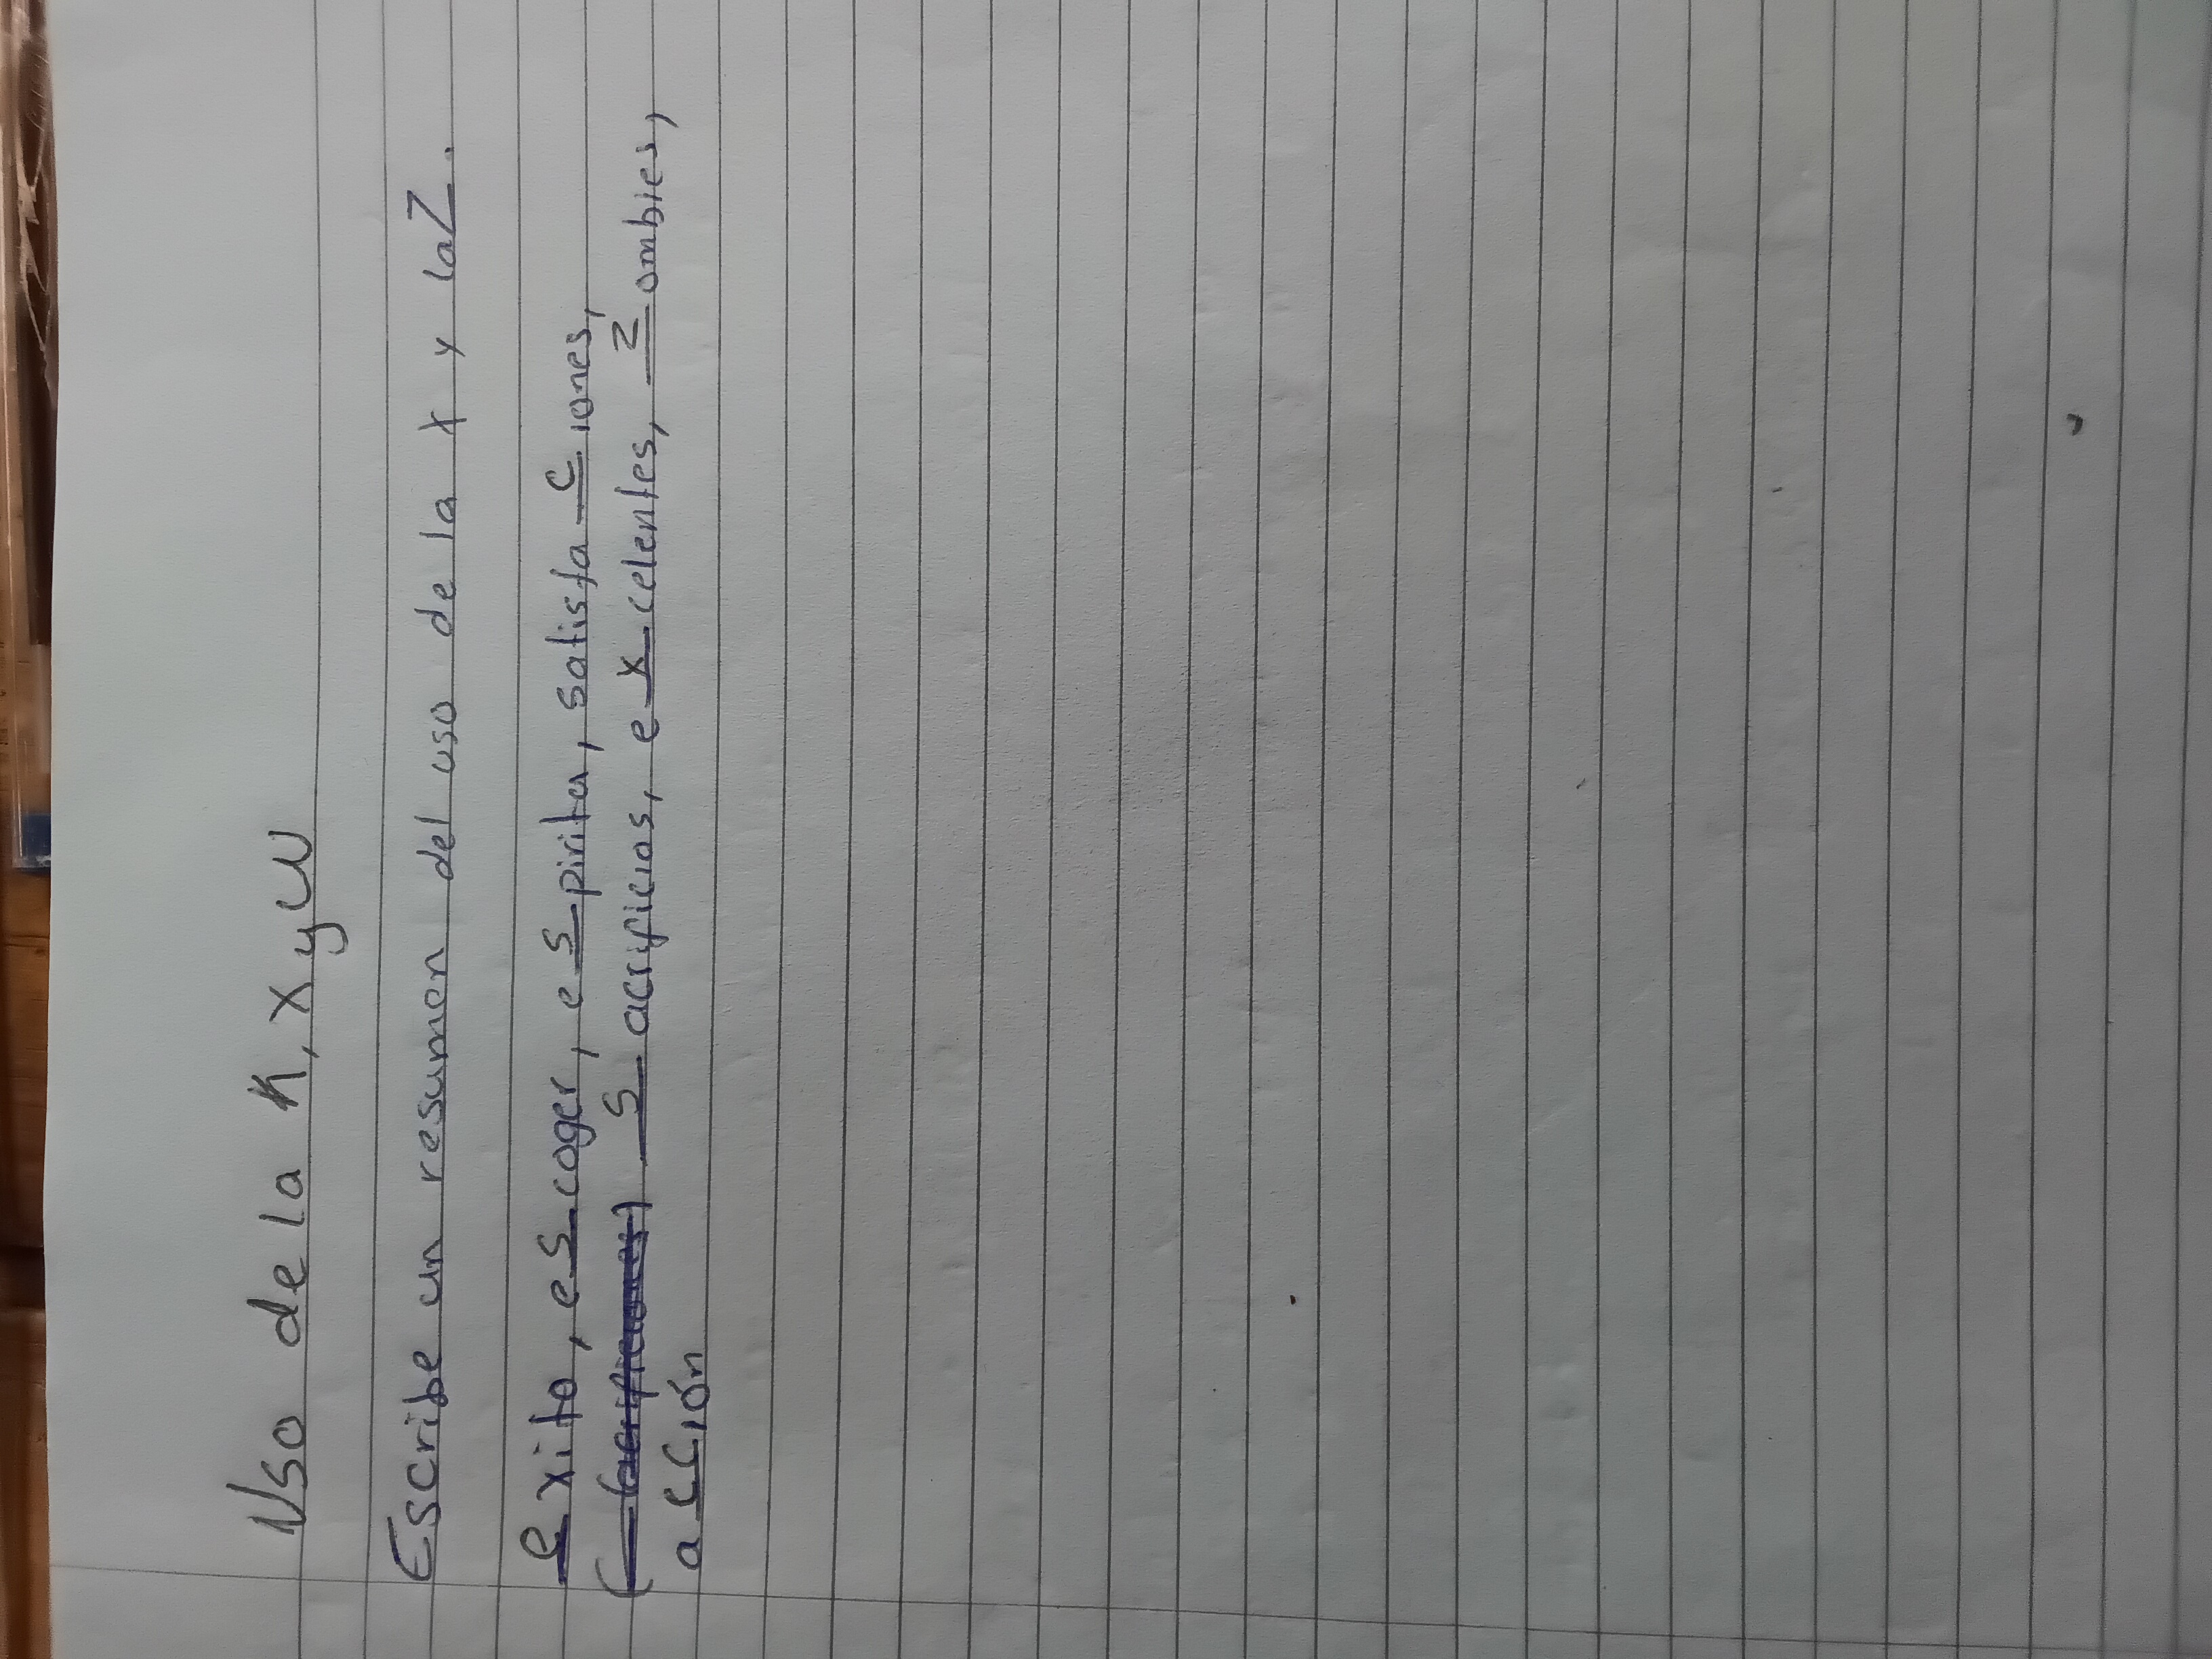 Uso de la K, X y W
Escribe un resumen del uso de la X y la Z.
exito, escoger, espiritu, satisfacciones,
sacrificios, excelentes, zombies,
acción